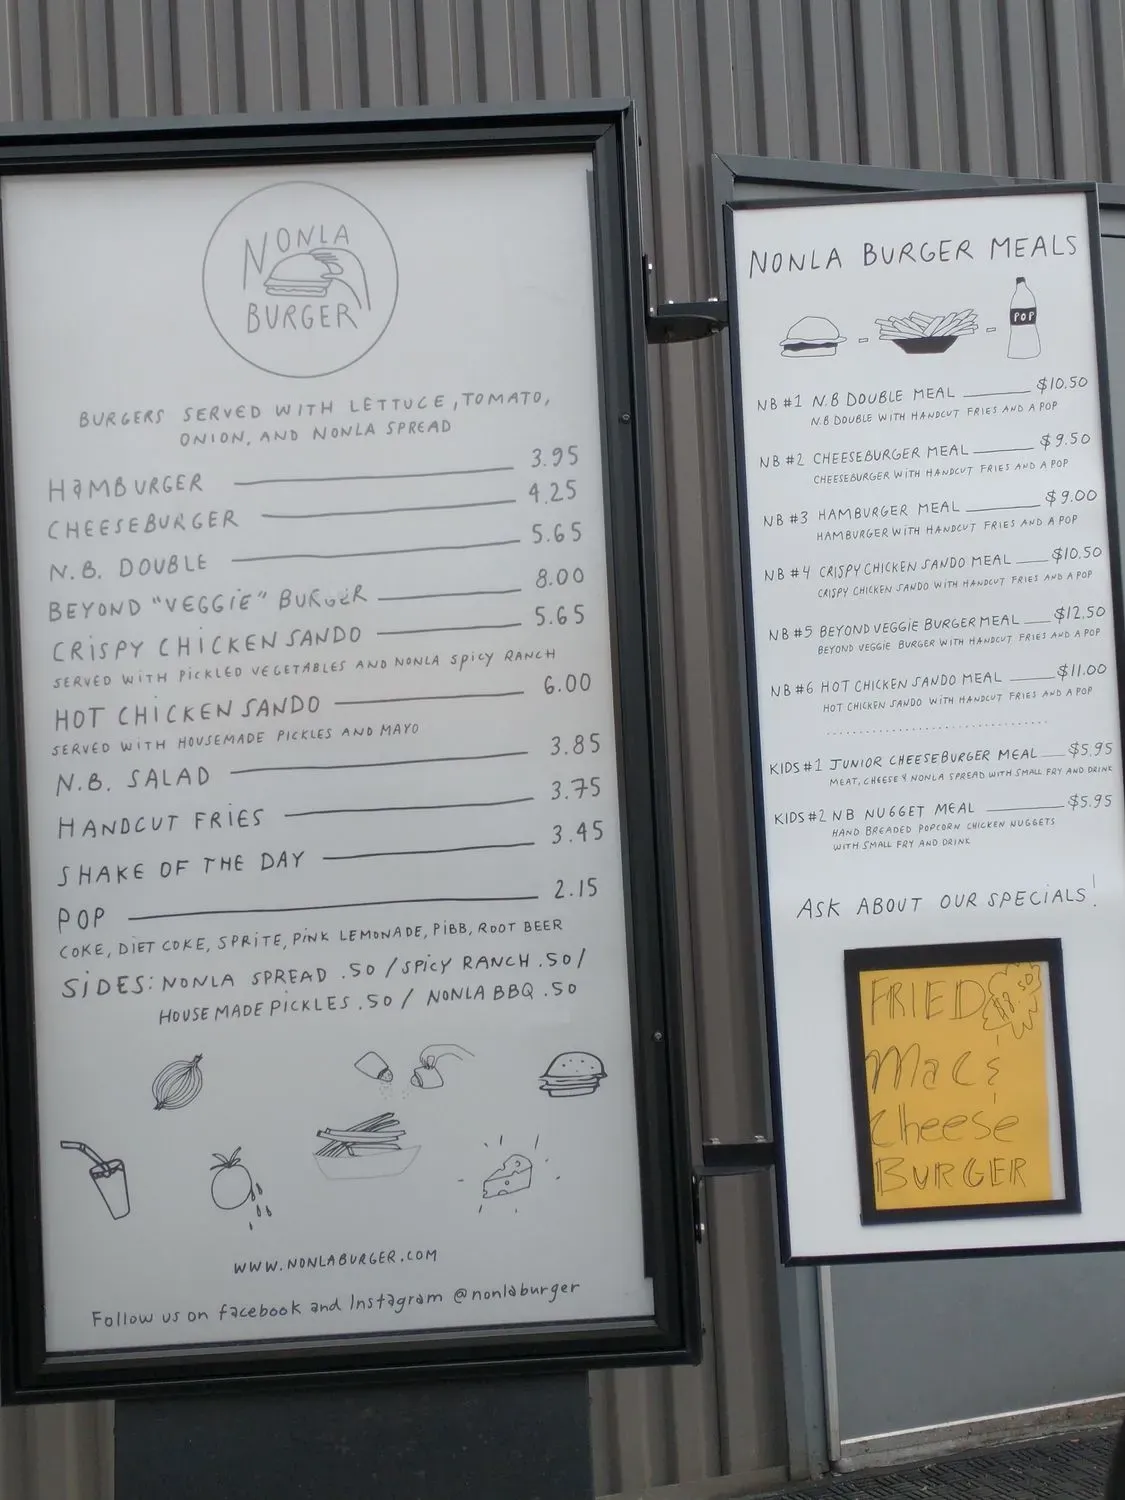 NONLA
BURGER
BURGERS SERVED WITH LETTUCE, TOMATO,
ONION, AND NONLA SPREAD
HAMBURGER 3.95
CHEESEBURGER 4.25
N.B. DOUBLE 5.65
BEYOND "VEGGiE" BURGER 8.00
CRiSPY CHiCKEN SANDO 5.65
SERVED WITH PICKLED VEGETABLES AND NONLA SPiCY RANCH
HOT CHiCKEN SANDO 6.00
SERVED WITH HOUSEMADE PICKLES AND MAYO
N.B. SALAD 3.85
HANDCUT FRIES 3.75
SHAKE OF THE DAY 3.45
POP 2.15
COKE, DIET COKE, SPRiTE, PiNK LEMONADE, PiBB, ROOT BEER
SiDES: NONLA SPREAD .50 / SPiCY RANCH .50 /
HOUSEMADE PICKLES .50 / NONLA BBQ .50
WWW.NONLABURGER.COM
Follow us on facebook and Instagram @nonlaburger
NONLA BURGER MEALS
POP
NB #1 N.B DOUBLE MEAL $10.50
N.B DOUBLE WITH HANDCUT FRIES AND A POP
NB #2 CHEESEBURGER MEAL $9.50
CHEESEBURGER WITH HANDCUT FRIES AND A POP
NB #3 HAMBURGER MEAL $9.00
HAMBURGER WITH HANDCUT FRIES AND A POP
NB #4 CRISPY CHICKEN SANDO MEAL $10.50
CRISPY CHICKEN SANDO WITH HANDCUT FRIES AND A POP
NB #5 BEYOND VEGGiE BURGER MEAL $12.50
BEYOND VEGGIE BURGER WITH HANDCUT FRIES AND A POP
NB #6 HOT CHICKEN SANDO MEAL $11.00
HOT CHICKEN SANDO WITH HANDCUT FRIES AND A POP
KIDS #1 JUNIOR CHEESEBURGER MEAL $5.95
MEAT, CHEESE & NONLA SPREAD WITH SMALL FRY AND DRINK
KIDS #2 NB NUGGET MEAL $5.95
HAND BREADED POPCORN CHICKEN NUGGETS
WITH SMALL FRY AND DRINK
ASK ABOUT OUR SPECiALS!
FRIED $8.50
Mac &
Cheese
BURGER